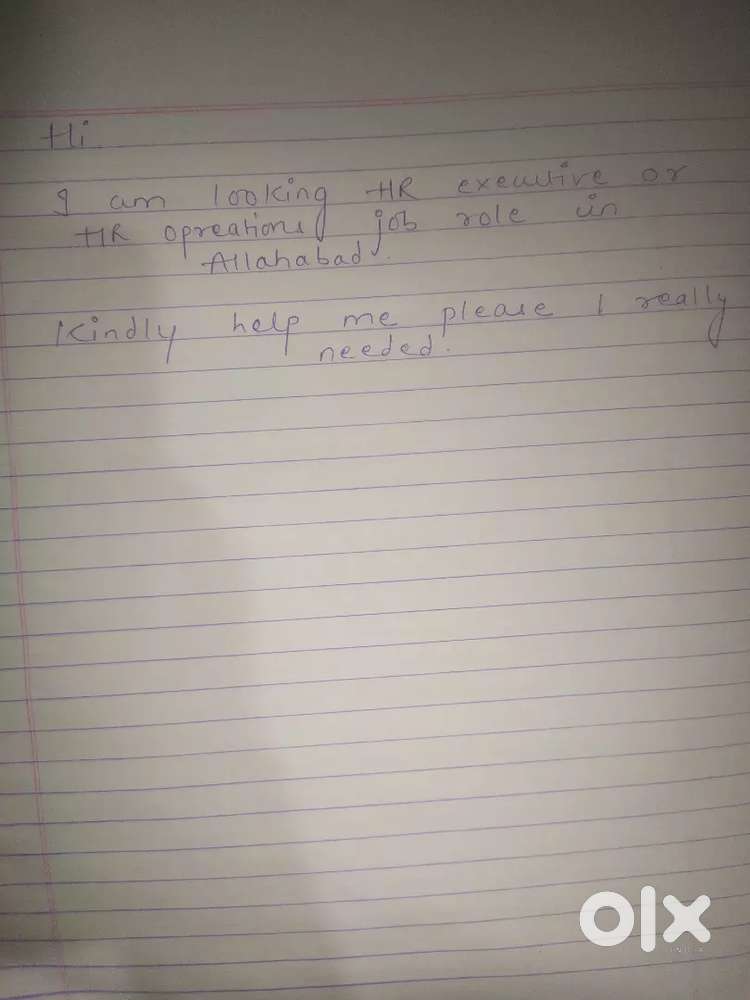 Hi
I am looking HR executive or
HR opreations job role in
Allahabad.
Kindly help me please I really
needed.
olx
INDIA